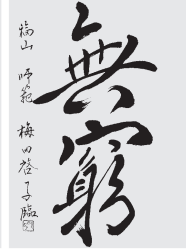 無窮
福山 師範 梅田啓子臨